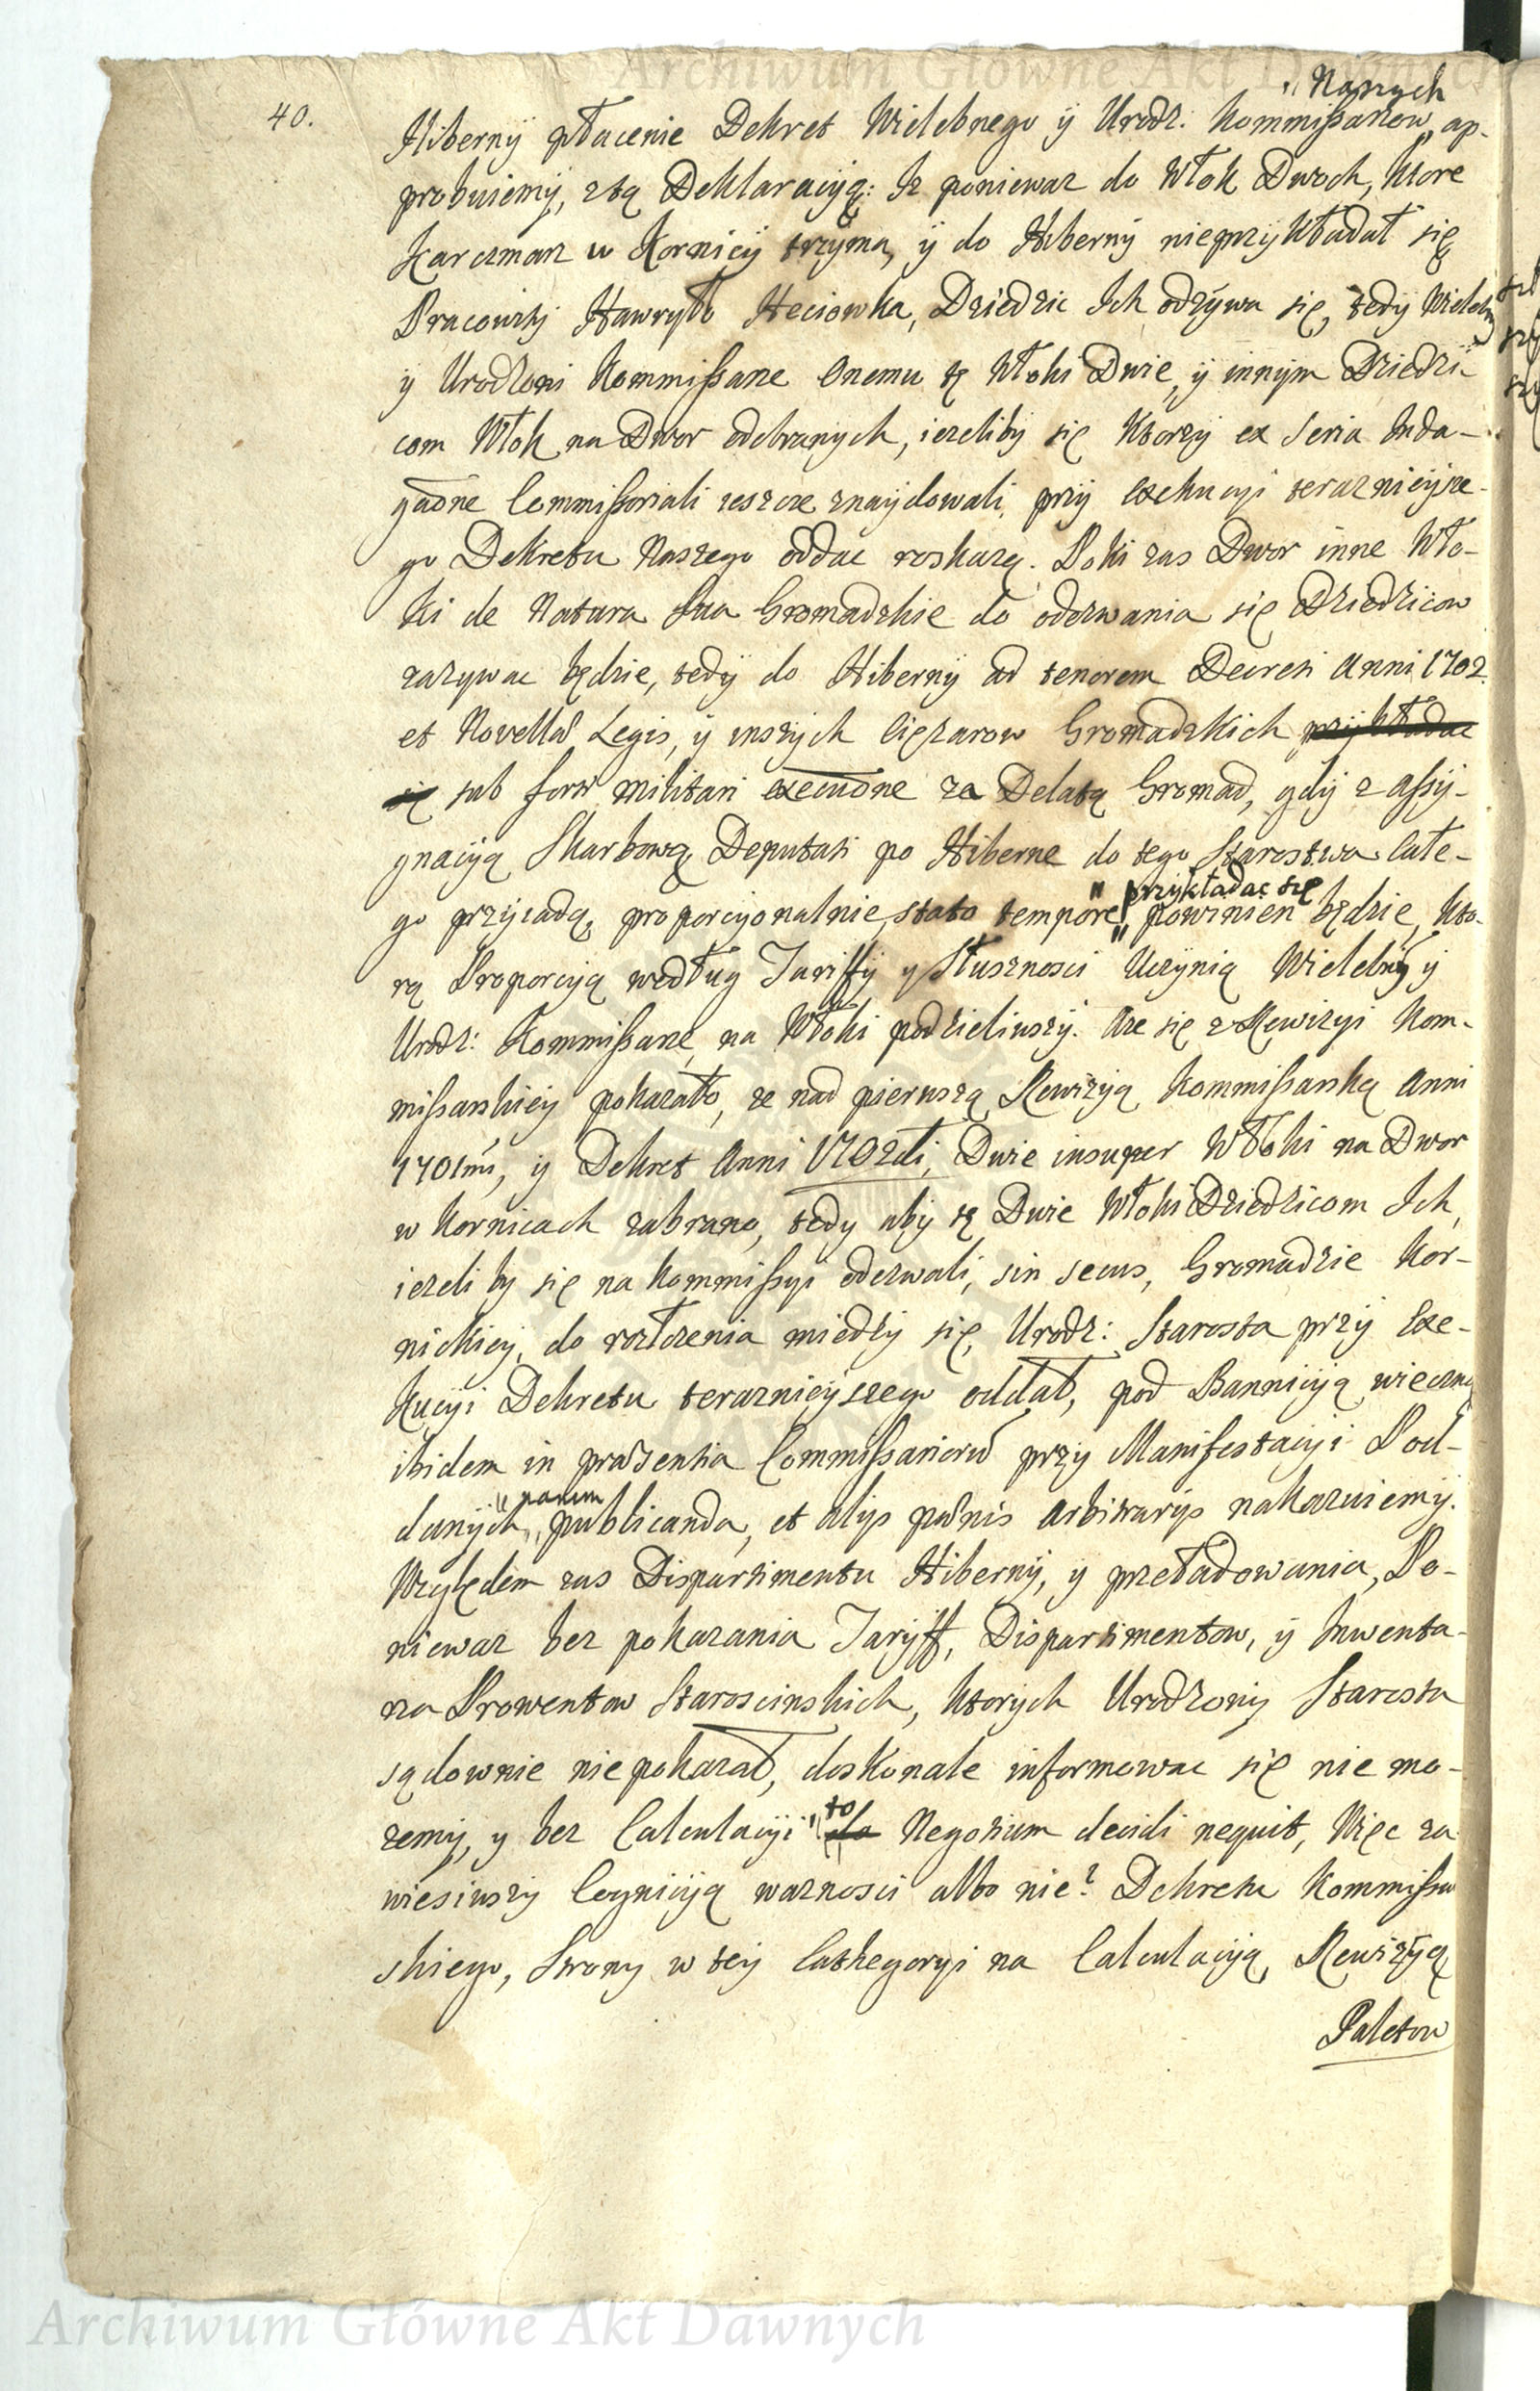 Archiwum Główne Akt Dawnych
40.
Naszych
Hiberny płacenie Dekret Wielebnego ÿ Urodz: Kommißarzow, ap-
probuiemÿ, z tą Deklaracÿą: Iz poniewaz do Włok Dwoch, ktore
Karczmarz w Kornicÿ trzÿma, ÿ do Hibernÿ nieprzÿkładał się
Pracowitÿ Hawryło Heciowka, Dziedzic Ich odzÿwa się, tedÿ Wielebny
ÿ Urodzoni Kommißarze Onemu tę Włoki Dwie, ÿ innÿm Dziedzi-
com Włok na Dwor odebranÿch, iezelibÿ się Ktorzÿ ex Seria Inda-
gaōne Commißoriali ieszcze znaÿdowali, przÿ Exekucÿi teraznieÿsze-
go Dekretu Naszego oddac roskazą. Poki zas Dwor inne Wło-
ki de Natura Sua Gromadzkie do odezwania się Dziedzicow
zazÿwac będzie, tedÿ do Hibernÿ ad tenorem Decreti Anni 1702.
et Novella Legis, ÿ inszÿch Ciężarow Gromadzkich przÿkładac
się sub form militari execuōne za Delatą Gromad, gdÿ z assÿ-
gnacÿą Skarbową Deputati po Hiberne do tego Starostwa Całe-
go przÿiadą, proporcÿonalnie, stato tempore " przÿkładac się " powinien będzie, kto-
rą Proporcÿą według Tariffÿ ÿ Słusznosci Uczÿnią Wielebnÿ ÿ
Urodz: Kommißarze, na Włoki podzieliwszÿ. Aze się z Rewizÿi Kom-
mißarskieÿ pokazało, ze nad pierwszą Rewizÿą Kommißarską Anni
1701mi, ÿ Dekret Anni 1702di, Dwie insuper Włoki na Dwor
w Kornicach zabrano, tedÿ abÿ tę Dwie Włoki Dziedzicom Ich,
iezeli bÿ się na Kommißÿi odezwali, sin secus, Gromadzie Kor-
nickieÿ, do rozłozenia międzÿ się, Urodz: Starosta przÿ Exe-
kucÿi Dekretu teraznieÿszego oddał, pod Bannicÿą wieczną
ibidem in præsentia Commißariorū przÿ Manifestacÿi Pod-
danÿch " parum " publicanda, et alÿs pœnis arbitrarÿs nakazuiemÿ.
Względem zas Dispartimentu Hibernÿ, ÿ przeładowania, Po-
niewaz bez pokazania Tarÿff, Dispartimentow, ÿ Inwenta-
rza Prowentow Staroscinskich, ktorÿch Urodzonÿ Starosta
sądownie niepokazał, doskonale informowac się nie mo-
zemÿ, ÿ bez Calculacÿi " to " do Negotium decidi nequit, Więc za
wiesiwszÿ Cognicÿą waznosci albo nie? Dekretu Kommißar
skiego, Stronÿ w teÿ Cathegorÿi na Calculacÿą, Rewizÿą
Paletow
Archiwum Główne Akt Dawnych